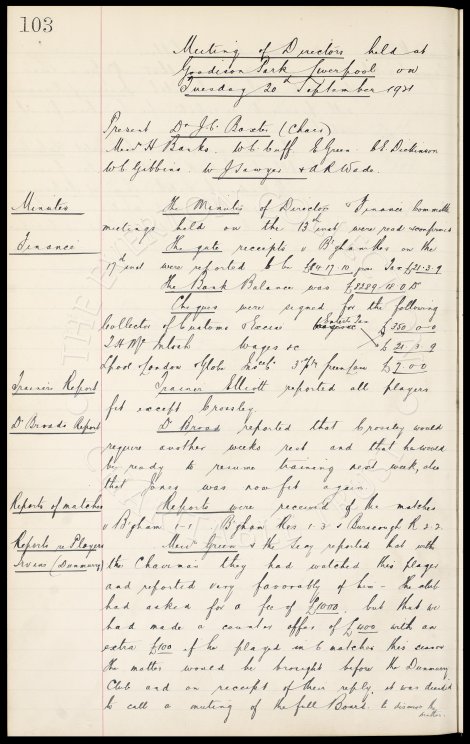 103
Meeting of Directors held at
Goodison Park Liverpool on
Tuesday 20th September 1921
Present Dr J.C. Baxter (Chair)
Messrs H Banks. W.C. Cuff E Green. A.E. Dickinson
W.C. Gibbins. W J Sawyer & A R Wade.
Minutes
The Minutes of Directors & Finance Committee
meetings held on the 13th inst were read & confirmed
Finance
The gate receipts v B'gham Res on the
17th inst were reported to be £89.17.10 Tax £21.3.9
The Bank Balance was £8289.18.0
Cheques were signed for the following
Collector of Customs & Excise Entert Tax £350.0.0
T.H. McIntosh Wages &c £21.3.9
Lpool London & Globe Insce Co £7.0.0
Trainers Report
Trainer Elliott reported all players
fit except Crossley
Dr Broads Report
Dr Broad reported that Crossley would
require another weeks rest and that he would
be ready to resume training next week, also
that Jones was now fit again
Reports of matches
Reports were received of the matches
v B'gham 1-1 B'gham Res 1-3 & Burscough R 2-2.
Reports re Players
Messrs Green & the Secy reported that with
Irvine (Dunmurry)
the Chairman they had watched this player
and reported very favorably of him - the club
had asked for a fee of £1000. but that we
had made a counter offer of £400 with an
extra £100 if he played in 6 matches this season
the matter would be brought before the Dunmurry
Club and on receipt of their reply it was decided
to call a meeting of the full Board to discuss the
matter.